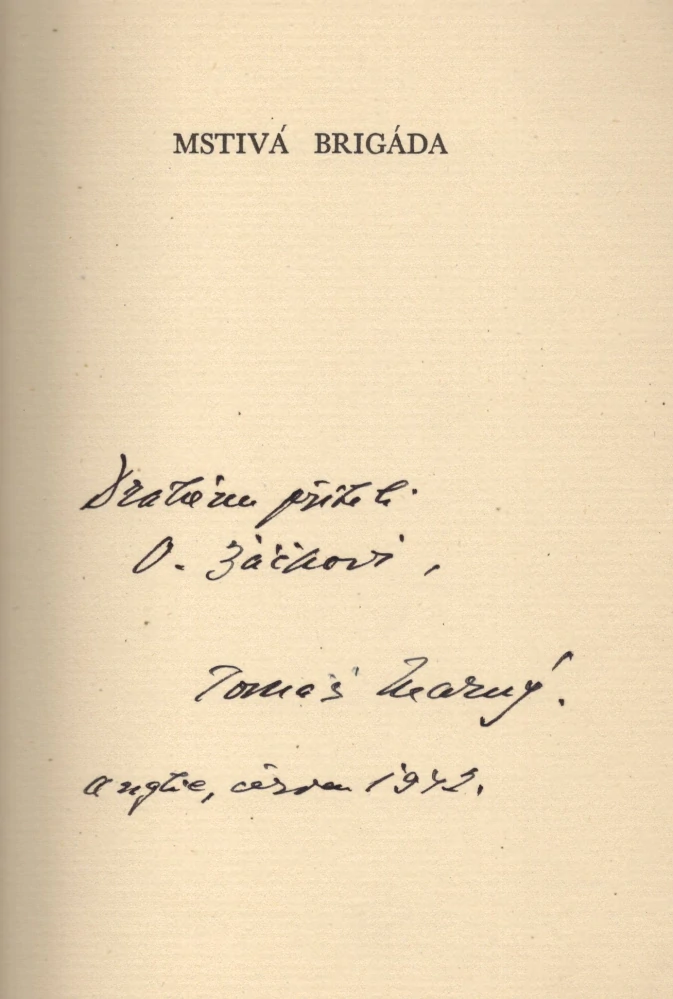 MSTIVÁ BRIGÁDA
Drahému příteli
O. Žáčkovi,
Tomáš Marný.
Anglie, červen 1942.